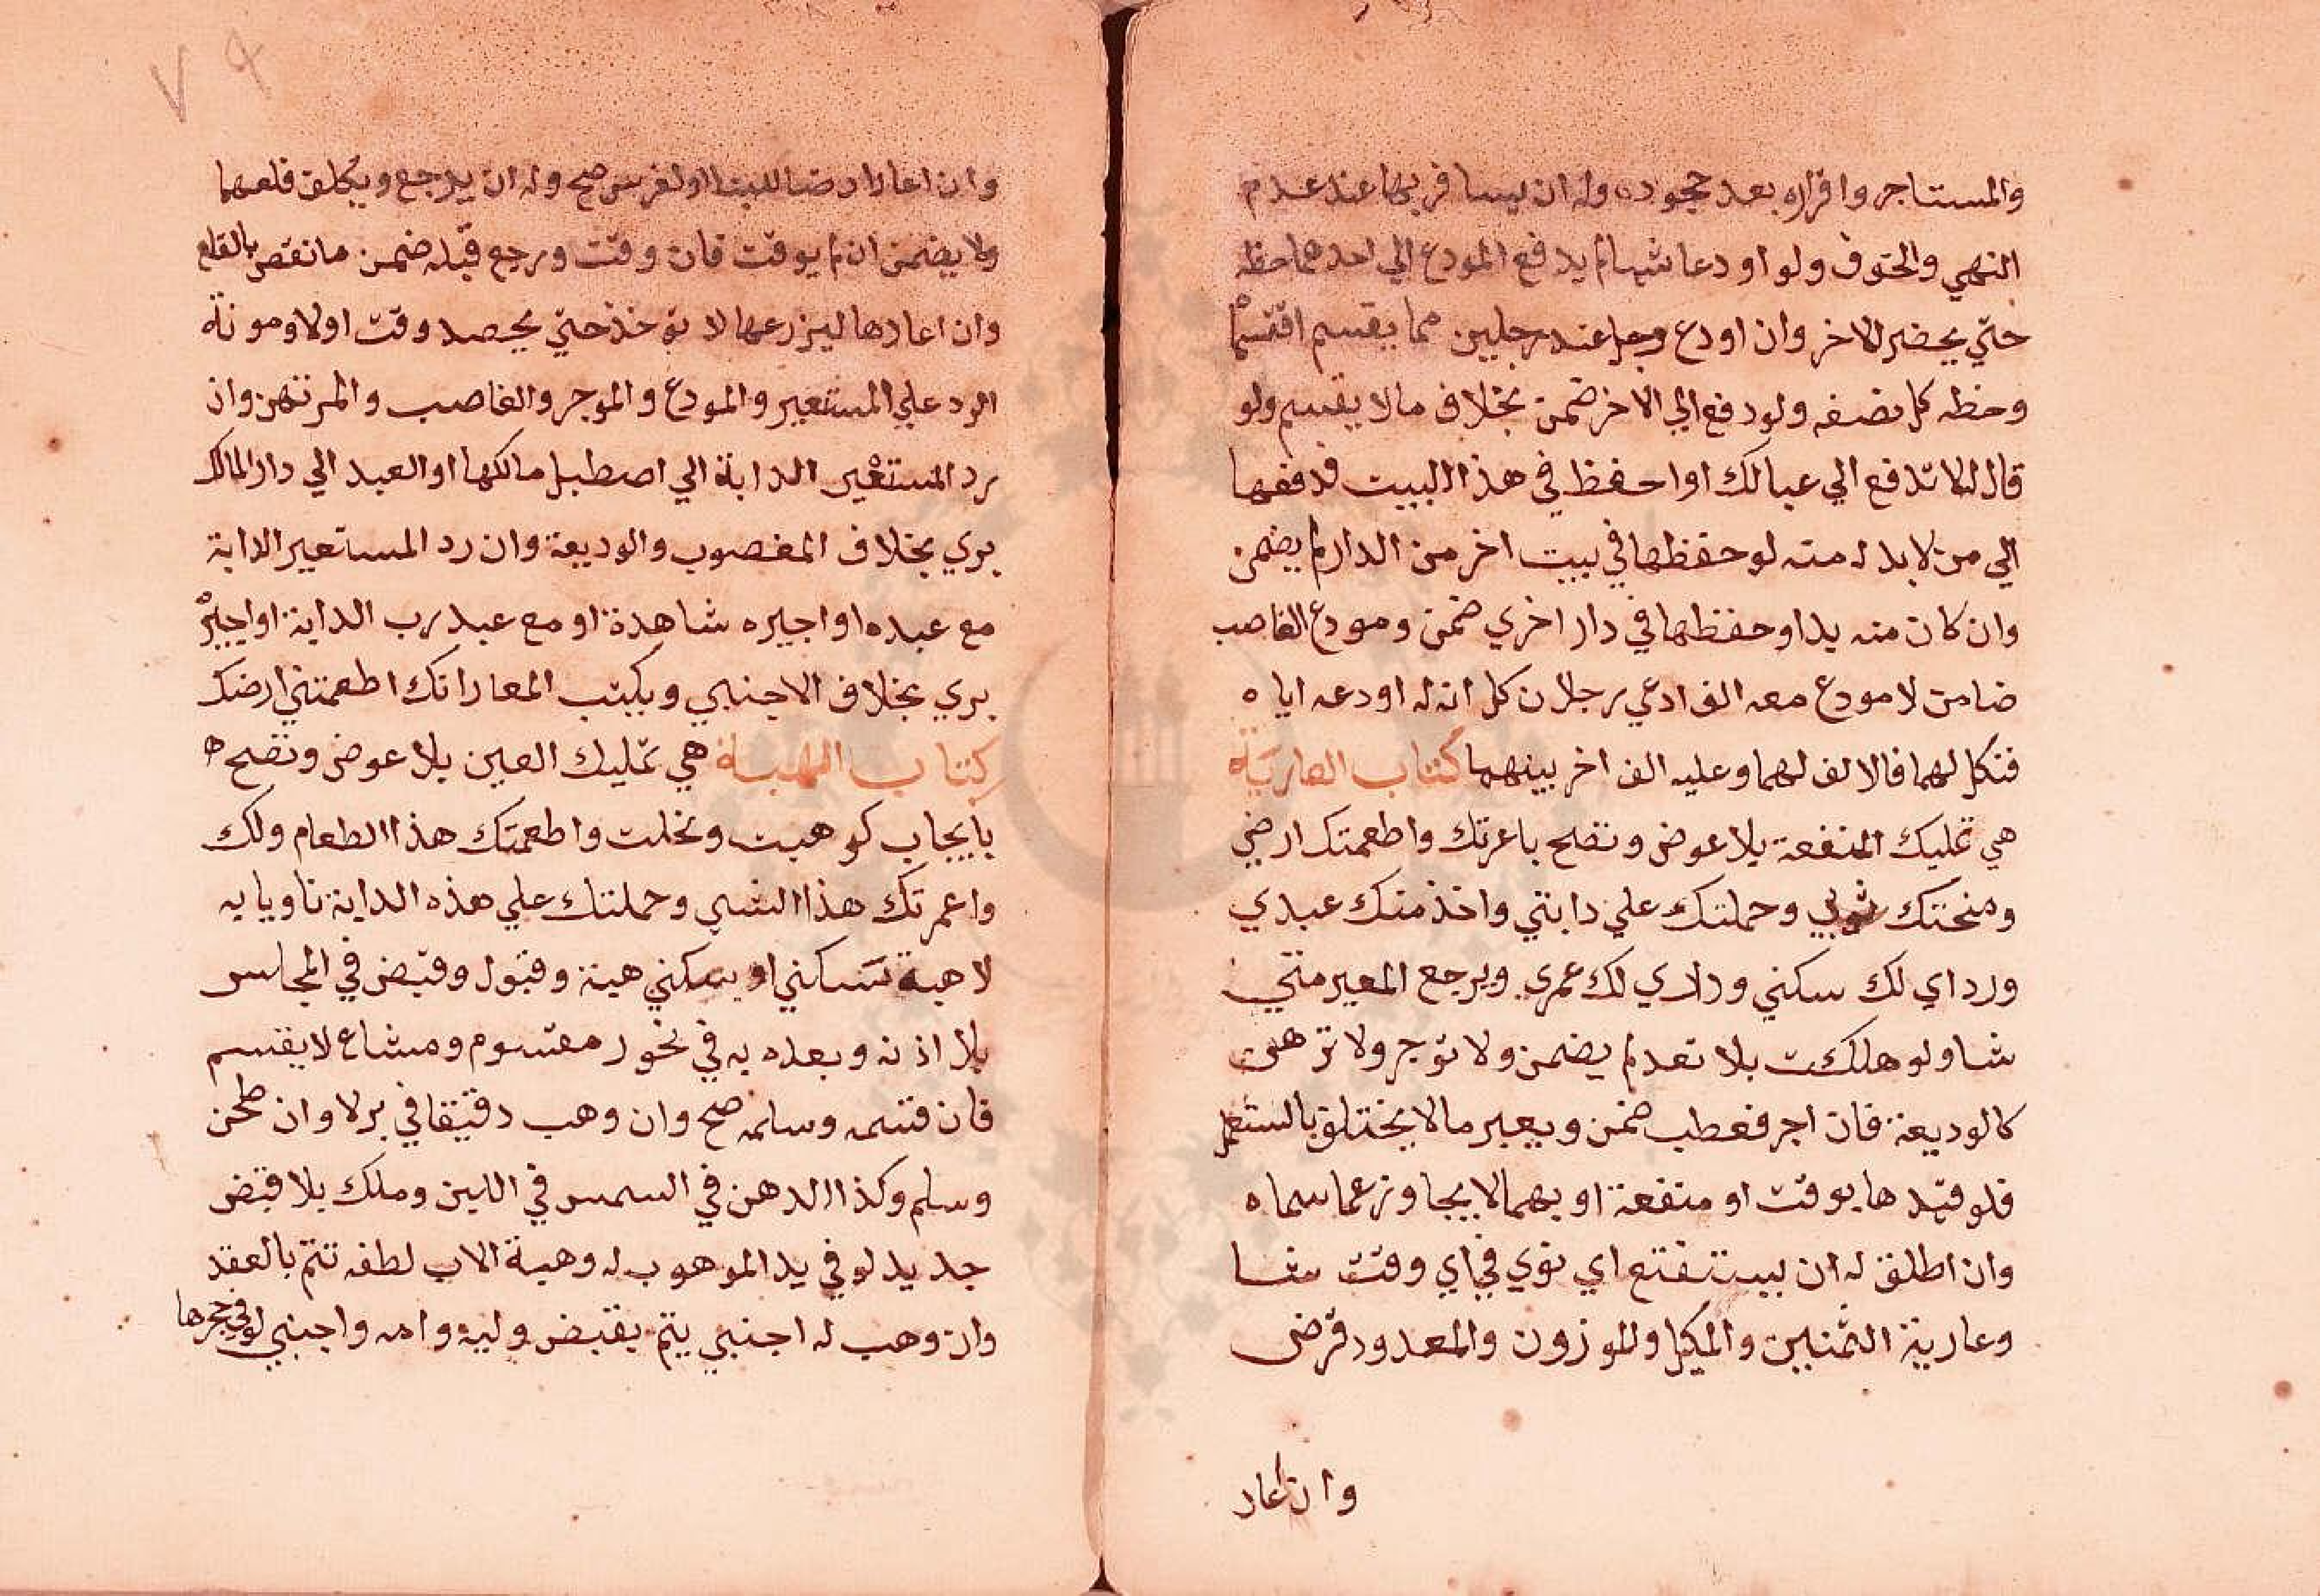 والمستاجر واقراره بعد جحوده وله ان يسافر بها عند عدم
النهي والخوف ولو اودعا شيا لم يدفع المودع الي احدهما حظه
حتي يحضر الاخر وان اودع رجل عند رجلين مما يقسم اقتسما
وحفظ كل نصفه ولو دفع الي الاخر ضمن بخلاف ما لا يقسم ولو
قال له لا تدفع الي عيالك او احفظ في هذا البيت فدفعها
الي من لا بد له منه لو حفظها في بيت اخر من الدار لم يضمن
وان كان منه بد او حفظها في دار اخري ضمن ومودع الغاصب
ضامن لا مودع معه الف ادعي رجلان كل انه له اودعه اياه
فنكل لهما فالالف لهما وعليه الف اخر بينهما كتاب العارية
هي تمليك المنفعة بلا عوض وتصح باعرتك واطعمتك ارضي
ومنحتك ثوبي وحملتك علي دابتي واخدمتك عبدي
ورداي لك سكني وداري لك عمري ويرجع المعير متي
شا ولو هلكت بلا تعد لم يضمن ولا توجر ولا ترهن
كالوديعة فان اجر فعطب ضمن ويعير ما لا يختلف بالستعمل
فلو قيدها بوقت او منفعة او بهما لا يجاوز عما سماه
وان اطلق له ان ينتفع اي نوي في اي وقت شا
وعارية الثمنين والمكيل والموزون والمعدود قرض
وان اعار
٧٩
وان اعار ارضا للبنا او لغرس صح وله ان يرجع ويكلف قلعهما
ولا يضمن ان لم يوقت فان وقت ورجع قبله ضمن ما نقص بالقلع
وان اعارها ليزرعها لا توخذ حتي يحصد وقت اولا ومونة
الرد علي المستعير والمودع والموجر والغاصب والمرتهن وان
رد المستعير الدابة الي اصطبل مالكها او العبد الي دار المالك
بري بخلاف المغصوب والوديعة وان رد المستعير الدابة
مع عبده او اجيره شاهدة او مع عبد رب الدابة او اجيره
بري بخلاف الاجنبي ويكتب المعار انك اطعمتني ارضك
كتاب الهبة هي تمليك العين بلا عوض وتصح
بايجاب كوهبت ونحلت واطعمتك هذا الطعام ولك
واعمرتك هذا الشي وحملتك علي هذه الدابة ناويا به
لا هبة سكني او سكني هبة وقبول وقبض في المجلس
بلا اذنه وبعده به في محوز مقسوم ومشاع لا يقسم
فان قسمه وسلمه صح وان وهب دقيقا في بر لا وان طحن
وسلم وكذا الدهن في السمسم في اللبن وملك بلا قبض
جديد لو في يد الموهوب له وهبة الاب لطفه تتم بالعقد
وان وهب له اجنبي يتم بقبض وليه وامه واجنبي لو في حجرها